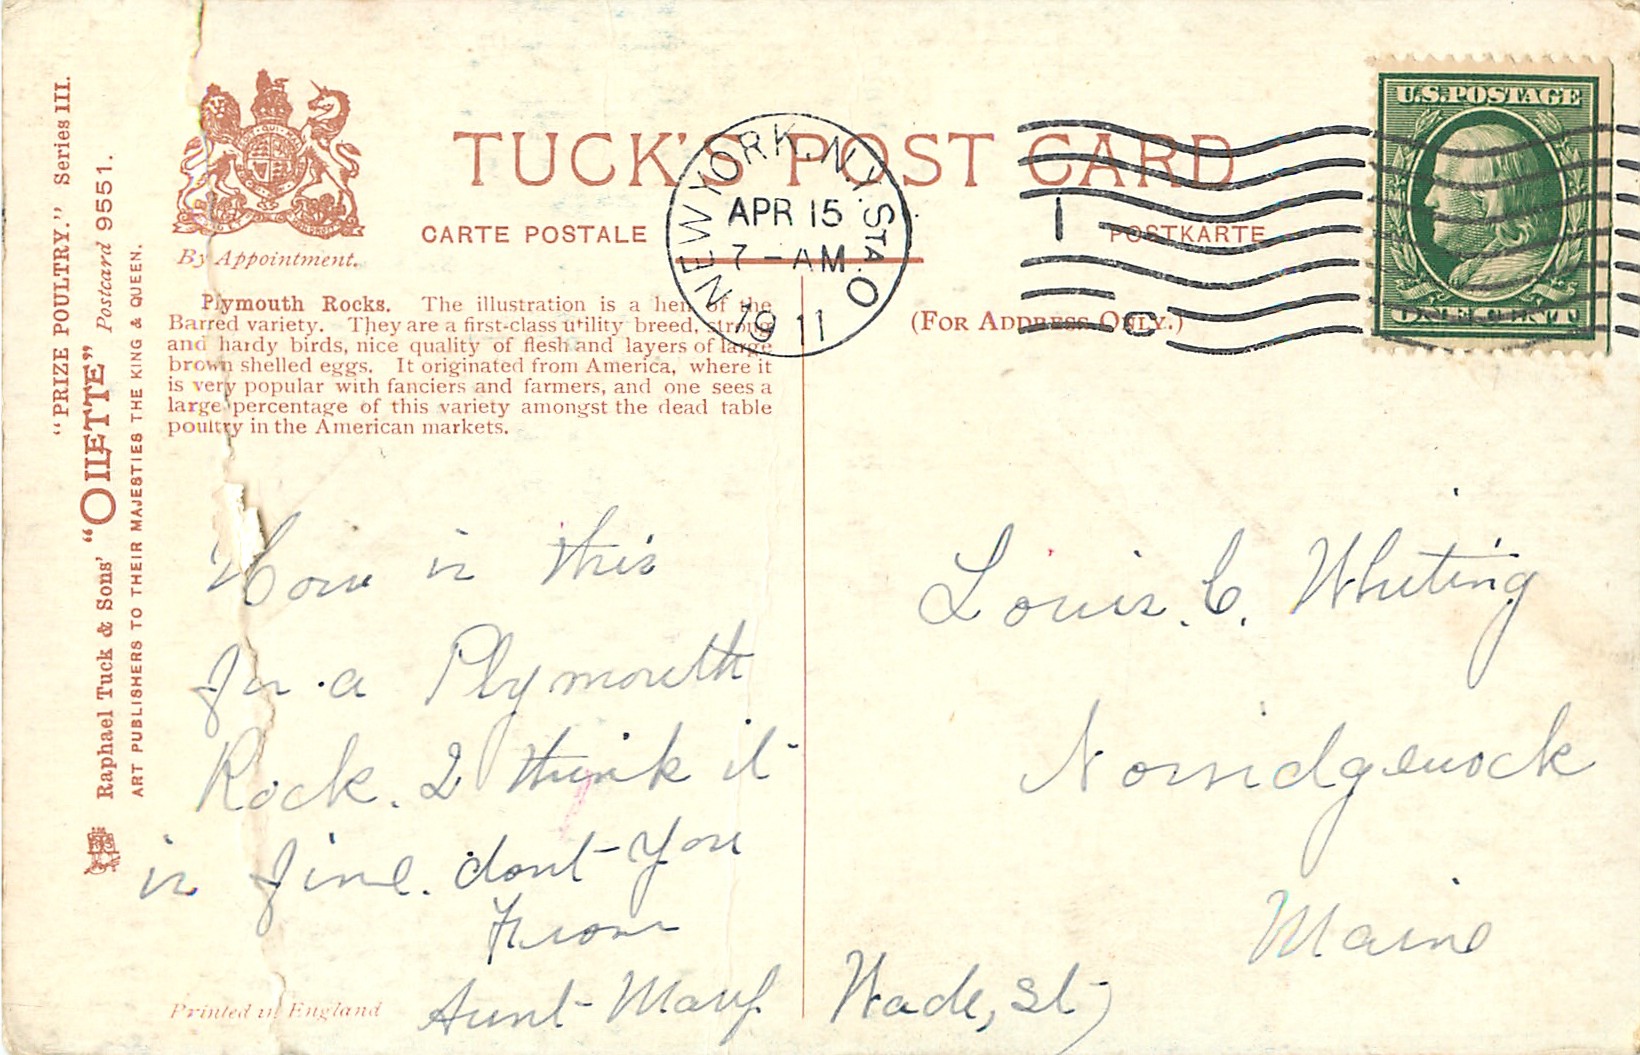 "PRIZE POULTRY." Series III.
Raphael Tuck & Sons' "OILETTE" Postcard 9551.
ART PUBLISHERS TO THEIR MAJESTIES THE KING & QUEEN.
By Appointment.
TUCK'S POST CARD
CARTE POSTALE
POSTKARTE
(FOR ADDRESS ONLY.)
NEW YORK, N.Y. STA. O
APR 15
7 - AM
1911
I
C
U.S. POSTAGE
ONE CENT
Plymouth Rocks. The illustration is a hen of the
Barred variety. They are a first-class utility breed, strong
and hardy birds, nice quality of flesh and layers of large
brown shelled eggs. It originated from America, where it
is very popular with fanciers and farmers, and one sees a
large percentage of this variety amongst the dead table
poultry in the American markets.
How is this
for a Plymouth
Rock. I think it
is fine. dont you
From
Aunt Mary
Printed in England
Louis. C. Whiting
Norridgewock
Maine
Wade, St